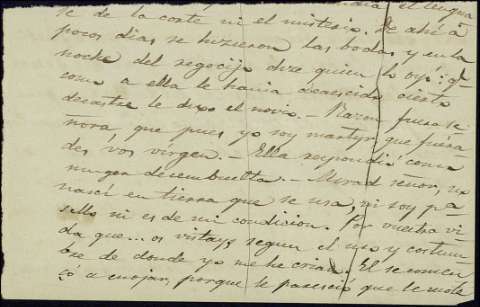 el lengua
je de la corte ni el misterio. De ahi á
pocos dias se hizieron las bodas y en la
noche del regocijo dize quien lo oyó: q.
como a ella le havia acaescido cierto
desastre le dixo el novio. — Razon fuera se
ñora que pues yo soy martyr que fuera
des vos virgen. — Ella respondió como
muger desembuelta. — Mirad señor, no
nascí en tierra que se usa, ni soy pa
ello ni es de mi condicion. Por vuestra vi
da que... os vistays segun el uso y costum
bre de donde yo me he criado. El se comen
zó a enojar, porque le paresció que le mote